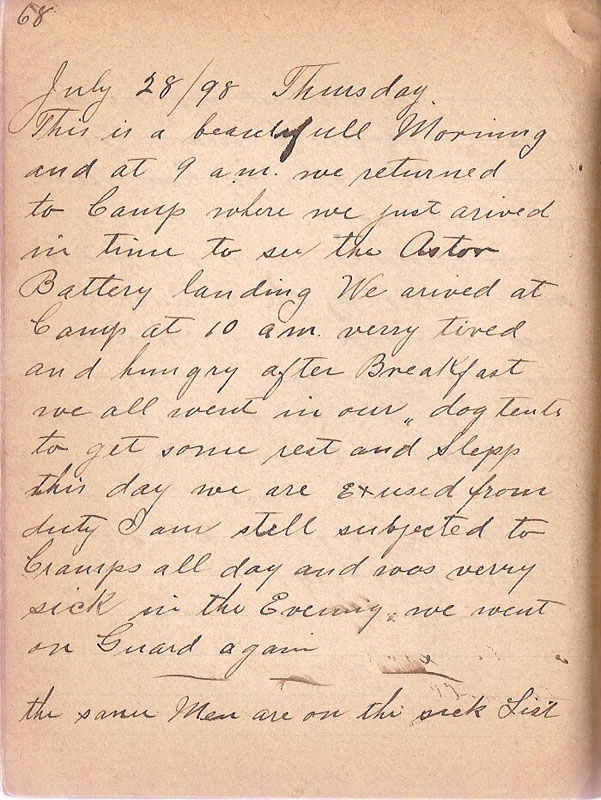 68
July 28/98 Thursday
This is a beautyfull Morning
and at 9 a.m. we returned
to Camp where we just arived
in time to see the Astor
Battery landing We arived at
Camp at 10 a.m. verry tired
and hungry after Breakfast
we all went in our „ dog tents
to get some rest and Slepp
this day we are Exused from
duty I am still subjected to
Cramps all day and was verry
sick in the Evening. we went
on Guard again
the same Men are on the sick List